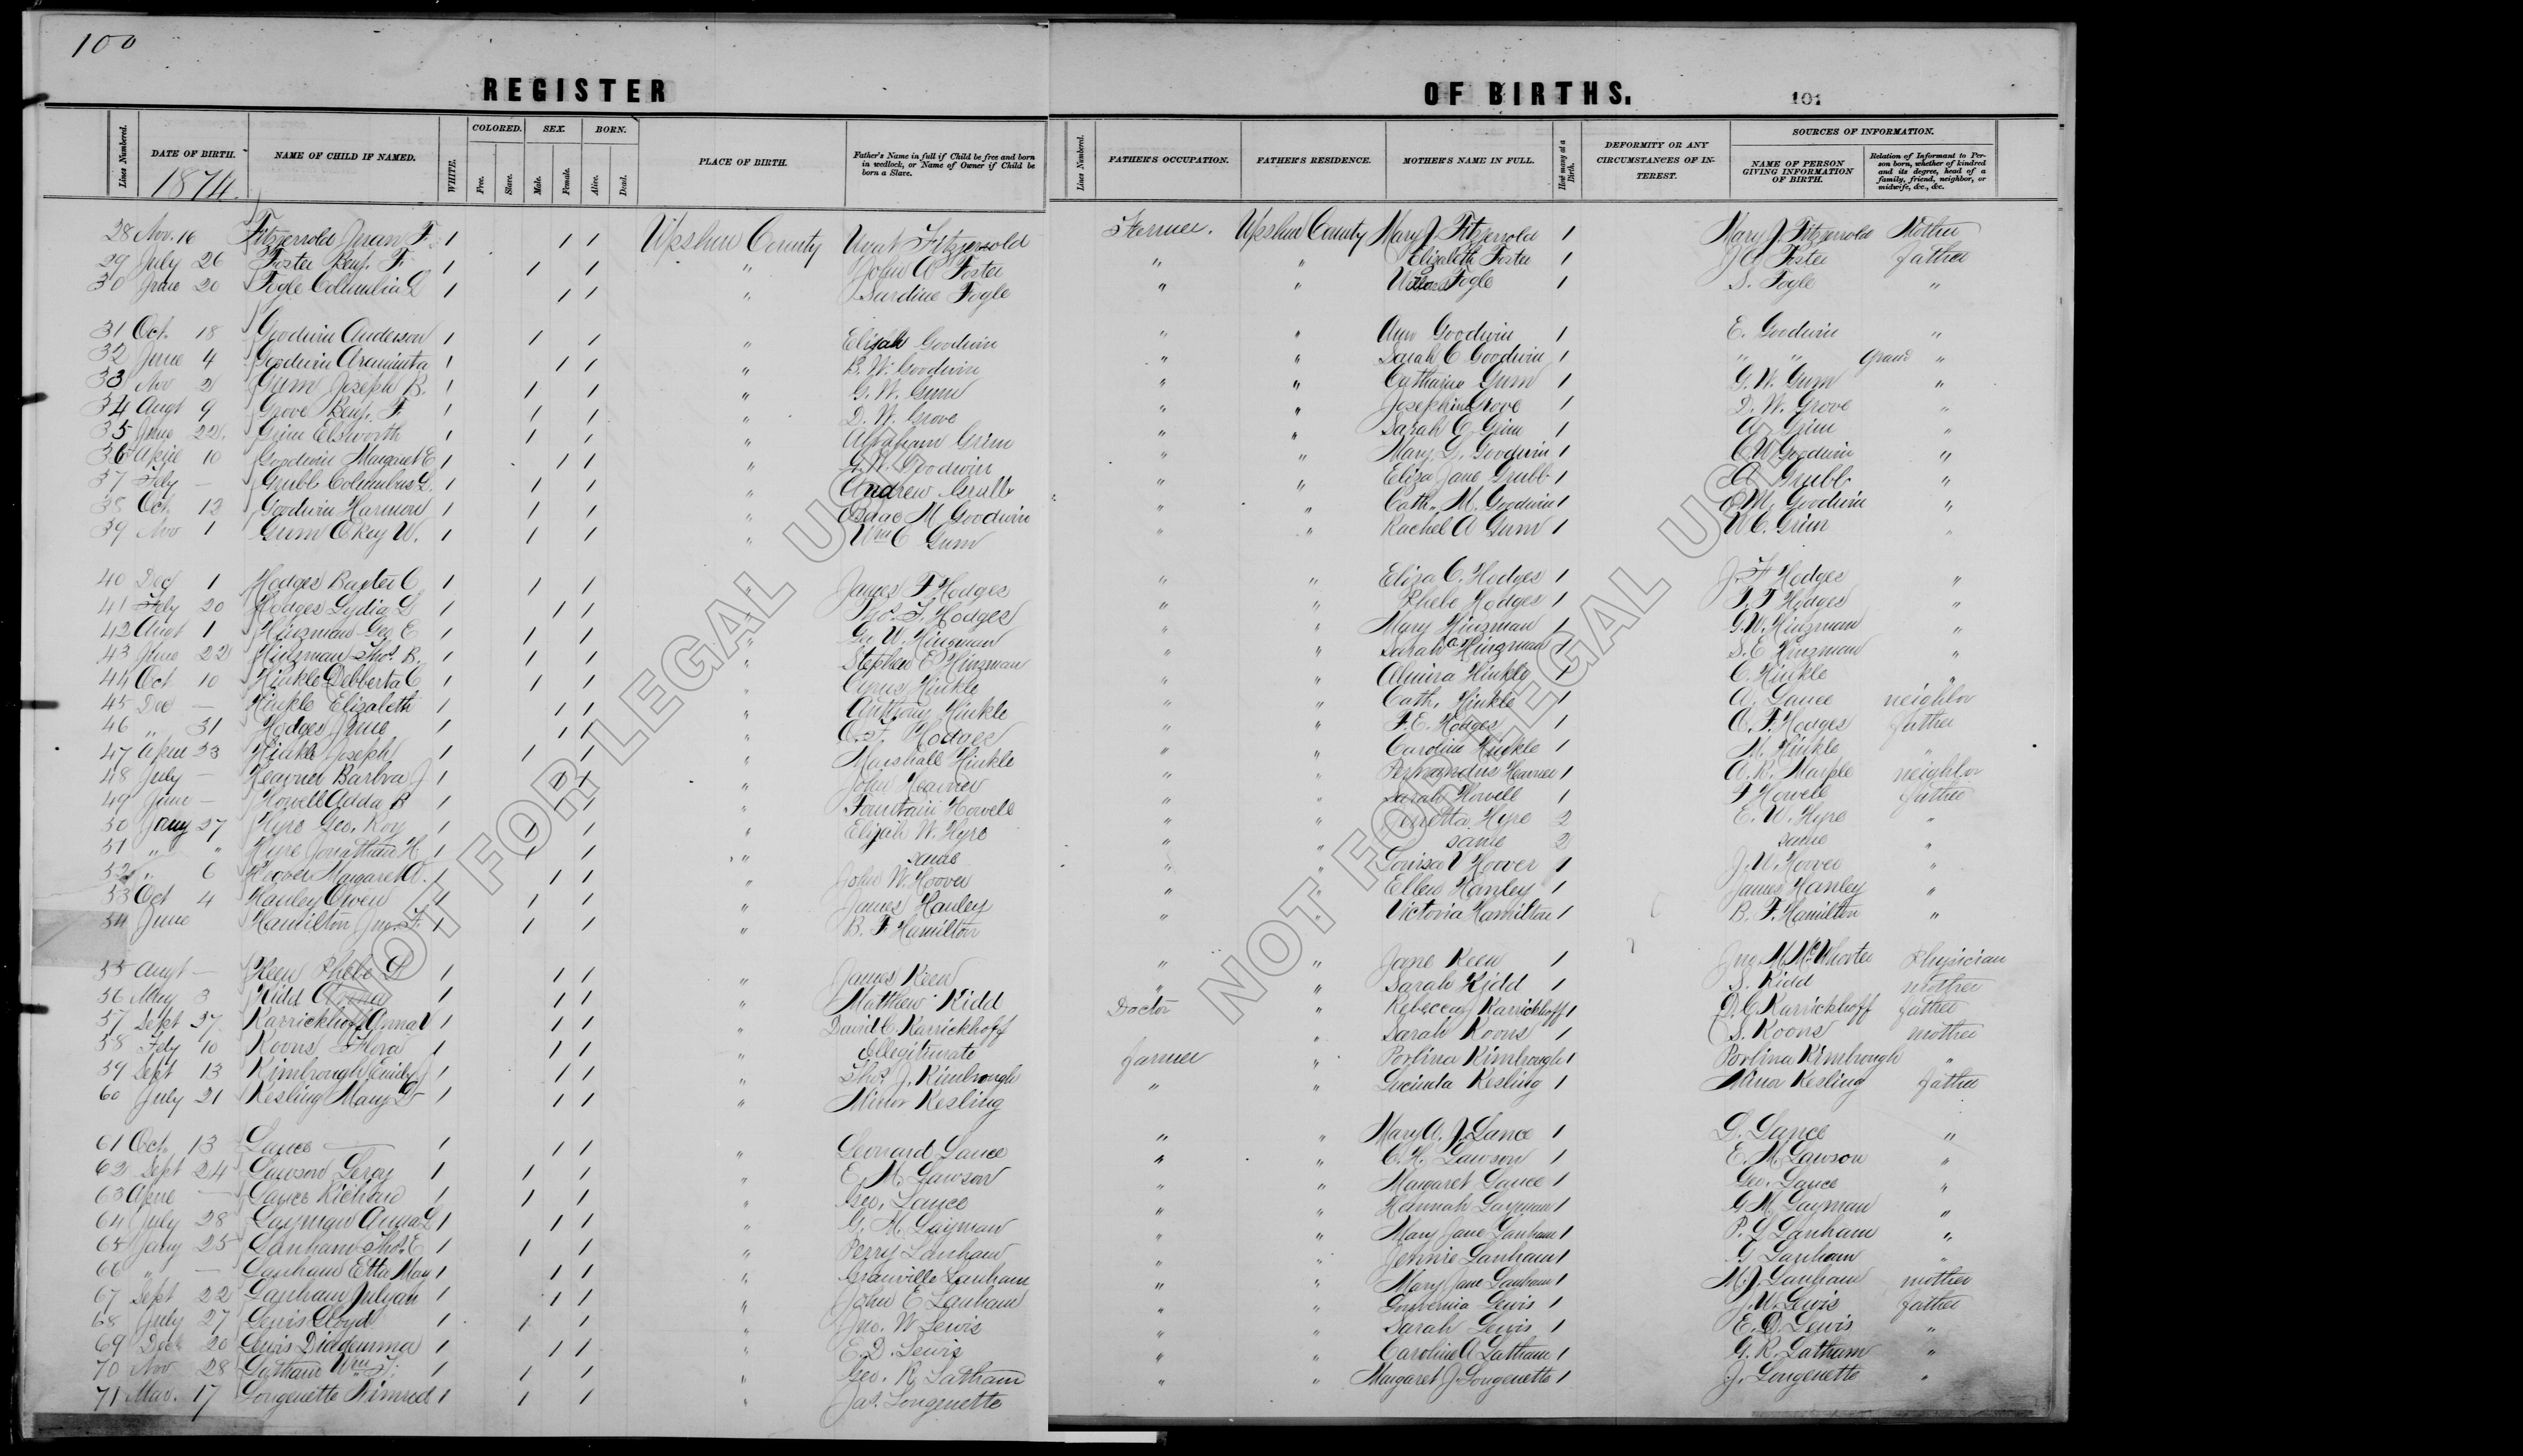 100
REGISTER
OF BIRTHS.
101
Lines Numbered.
DATE OF BIRTH.
1874.
NAME OF CHILD IF NAMED.
WHITE.
COLORED.
Free.
Slave.
SEX.
Male.
Female.
BORN.
Alive.
Dead.
PLACE OF BIRTH.
Father's Name in full if Child be free and born in wedlock, or Name of Owner if Child be born a Slave.
Lines Numbered.
FATHER'S OCCUPATION.
FATHER'S RESIDENCE.
MOTHER'S NAME IN FULL.
How many at a Birth.
DEFORMITY OR ANY CIRCUMSTANCES OF INTEREST.
SOURCES OF INFORMATION.
NAME OF PERSON GIVING INFORMATION OF BIRTH.
Relation of Informant to Person born, whether of kindred and its degree, head of a family, friend, neighbor, or midwife, &c., &c.
28 Nov. 16 Fitzgerrold F. 1 1 1 Upshur County Fitzgerrold Farmer. Upshur County Mary J. Fitzgerrold 1 Mary J. Fitzgerrold Mother
29 July 26 Foster Benj. F. 1 1 1 " John A Foster " " Elizabeth Foster 1 J A Foster father
30 June 20 Fogle Columbia 1 1 1 " Sardine Fogle " " Fogle 1 S. Fogle "
31 Oct. 18 Goodwin Anderson 1 1 1 " Elijah Goodwin " " Ann Goodwin 1 E. Goodwin "
32 June 4 Goodwin Araminta 1 1 1 " B. W. Goodwin " " Sarah C Goodwin 1 " " Grand "
33 Nov 2 Gum Joseph B. 1 1 1 " G. W. Gum " " Catharine Gum 1 G. W. Gum "
34 Augt 9 Grove Benj. F. 1 1 1 " D. W. Grove " " Josephine Grove 1 D. W. Grove "
35 June 22. Grim Elsworth 1 1 1 " Abraham Grim " " Sarah C. Grim 1 A Grim "
36 April 10 Goodwin Margaret E 1 1 1 " Goodwin " " Mary G. Goodwin 1 C W Goodwin "
37 Feby — Grubb Columbus L. 1 1 1 " Andrew Grubb " " Eliza Jane Grubb 1 A Grubb "
38 Oct. 12 Goodwin Harmon 1 1 1 " Isaac M Goodwin " " Cath. M. Goodwin 1 M. Goodwin "
39 Nov 1 Gum Okey W. 1 1 1 " Wm C Gum " " Rachel A Gum 1 W C. Grim "
40 Dec 1 Hodges Baxter C 1 1 1 " James F Hodges " " Eliza C. Hodges 1 J. F Hodges "
41 Feby 20 Hodges Lydia 1 1 1 " Hodges " " Phebe Hodges 1 Hodges "
42 Augt 1 Hinzman Geo E 1 1 1 " Geo W. Hinzman " " Mary Hinzman 1 G. W. Hinzman "
43 June 22 Hinzman Thos. B. 1 1 1 " Stephen E Hinzman " " Sarah A Hinzman 1 S. E Hinzman "
44 Oct 10 Hinkle Debberta C 1 1 1 " Cyrus Hinkle " " Almira Hinkle 1 C. Hinkle "
45 Dec — Hinkle Elizabeth 1 1 1 " Anthony Hinkle " " Cath. Hinkle 1 A. Lance neighbor
46 " 31 Hodges June 1 1 1 " Hodges " " F. E. Hodges 1 F. Hodges father
47 April 23 Hinkle Joseph 1 1 1 " Marshall Hinkle " " Caroline Hinkle 1 M. Hinkle "
48 July — Heavner Barbra J 1 1 1 " John Heavner " " Heavner 1 A. K. Marple neighbor
49 June — Howell Adda B 1 1 1 " Fountain Howell " " Sarah Howell 1 F Howell father
50 Jany 27 Hyre Geo. Roy 1 1 1 " Elijah W. Hyre " " Hyre 2 E. W. Hyre "
51 " " Hyre Jonathan H. 1 1 1 " same " " same 2 same "
52 " 6 Hoover Margaret A. 1 1 1 " John W. Hoover " " Louisa V Hoover 1 J. W. Hoover "
53 Oct 4 Hanley Owen 1 1 1 " James Hanley " " Ellen Hanley 1 James Hanley "
54 June Hamilton Jno. F. 1 1 1 " B. F Hamilton " " Victoria Hamilton 1 B. F. Hamilton "
55 Augt — Keen Phebe 1 1 1 " James Keen " " Jane Keen 1 Jno. M. McWhorter Physician
56 May 3 Kidd 1 1 1 " Matthew Kidd " " Sarah Kidd 1 S. Kidd mother
57 Sept 27. Karrickhoff Anna V 1 1 1 " David C. Karrickhoff Doctor " Rebecca J Karrickhoff 1 D. C. Karrickhoff father
58 Feby 10 Koons Flora 1 1 1 " Illegitimate " Sarah Koons 1 S. Koons mother
59 Sept 13 Kimbrough Emily J 1 1 1 " Thos. J. Kimbrough farmer " Porlina Kimbrough 1 Porlina Kimbrough "
60 July 21 Kesling Mary 1 1 1 " Minor Kesling " " Lucinda Kesling 1 Minor Kesling father
61 Oct. 13 Lance — 1 1 1 " Leonard Lance " " Mary A. J. Lance 1 L. Lance "
62 Sept 24 Lawson Leroy 1 1 1 " E. M. Lawson " " C. H. Lawson 1 E. M. Lawson "
63 April — Lance Richard 1 1 1 " Geo. Lance " " Margaret Lance 1 Geo. Lance "
64 July 28 Layman Anna L 1 1 1 " G. M. Layman " " Hannah Layman 1 G M. Layman "
65 Jany 25 Lanham Thos. E 1 1 1 " Perry Lanham " " Mary Jane Lanham 1 P. G Lanham "
66 " — Lanham Etta May 1 1 1 " Granville Lanham " " Jennie Lanham 1 G Lanham "
67 Sept 22 Lanham Julyan 1 1 1 " John E Lanham " " Mary Jane Lanham 1 M. J. Lanham mother
68 July 27 Lewis Cloyd 1 1 1 " Jno. W Lewis " " Lewis 1 J. W. Lewis father
69 Dec 20 Lewis Diademma 1 1 1 " E. D. Lewis " " Sarah Lewis 1 E. D. Lewis "
70 Nov 28 Latham Wm. 1 1 1 " Geo. R. Latham " " Caroline A Latham 1 G. R. Latham "
71 Mar. 17 Longenette Nimrod 1 1 1 " Jas. Longenette " " Margaret J. Longenette 1 J. Longenette "
NOT FOR LEGAL USE
NOT FOR LEGAL USE